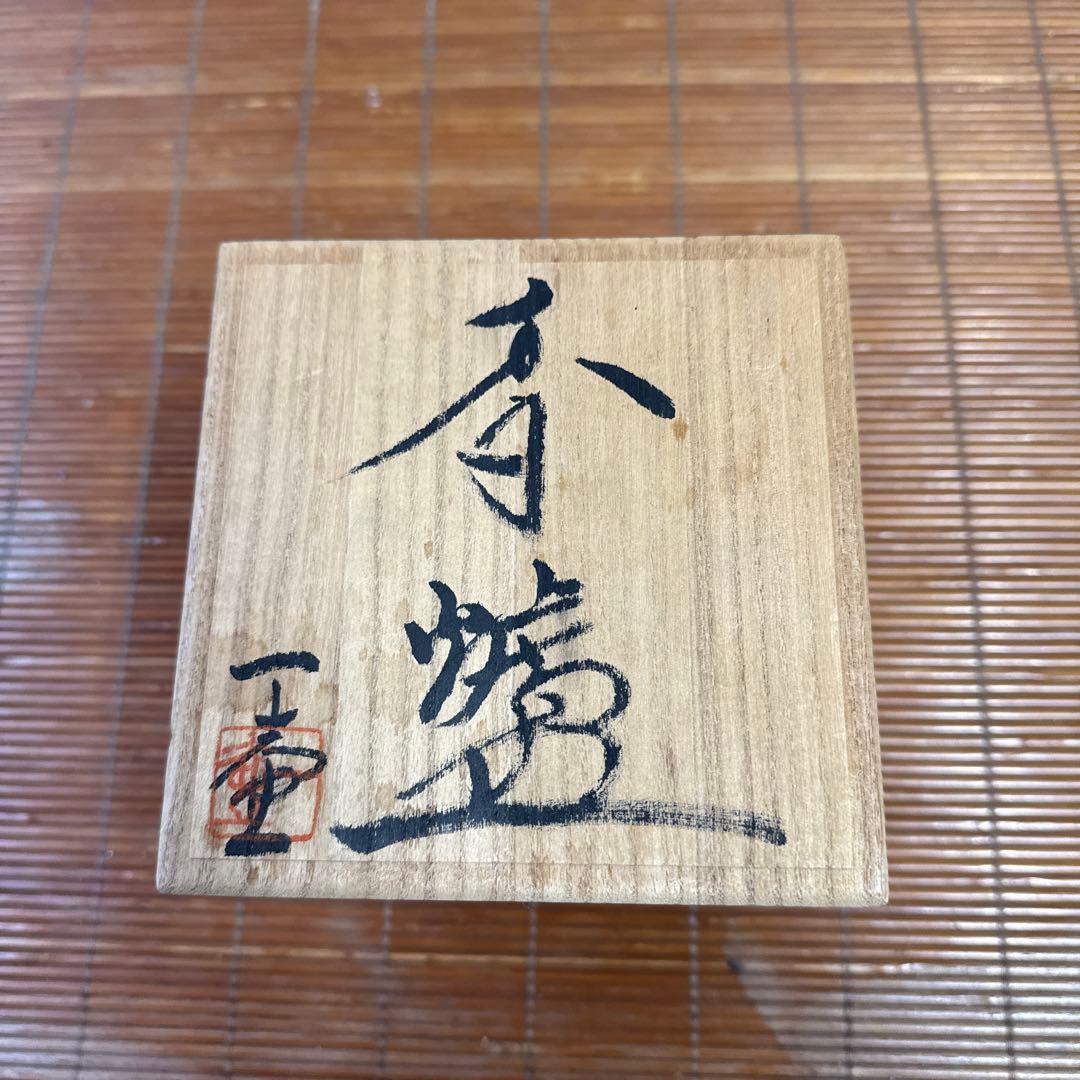 香爐
一壷